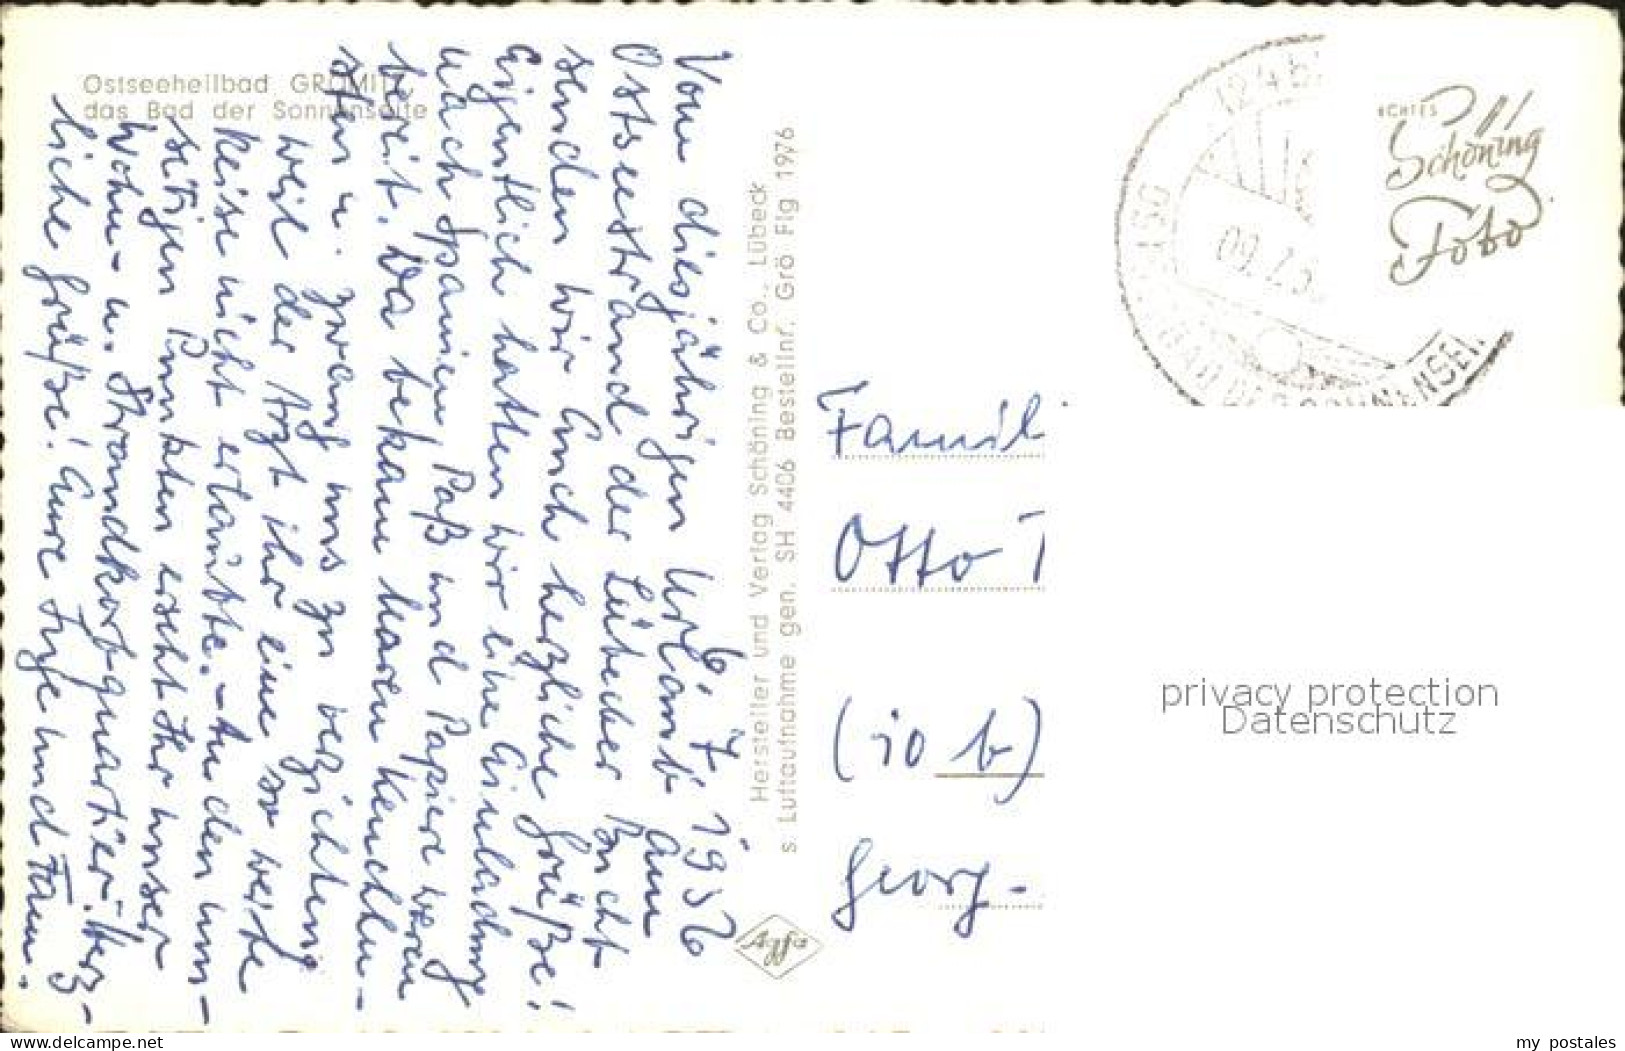 Ostseeheilbad GRÖMITZ
das Bad der Sonnenseite
6. 7. 1956
Vom diesjährigen Urlaub am
Ostseestrand der Lübecker Bucht
senden wir Euch herzliche Grüße!
Eigentlich hatten wir eine Einladung
nach Spanien, Paß und Papiere waren
bereit. Da bekam Maren Keuchhu-
sten u. zwang uns zu verzichten
weil der Arzt ihr eine so weite
Reise nicht erlaubte. - An den um-
seitigen Punkten erseht Ihr unser
Wohn- u. Strandkorbquartier. Herz-
liche Grüße! Eure Inge und Fam.
Hersteller und Verlag Schöning & Co., Lübeck
s. Luftaufnahme gen. SH 4406 Bestellnr. Grö Flg 1976
Agfa
ECHTES
Schöning
Foto
Famil
Otto
(10 b)
Georg-
privacy protection
Datenschutz
oldthing.de
my_postales